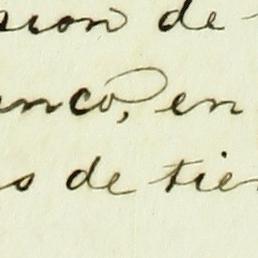 sion de
anco, en
s de tie